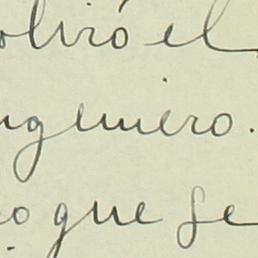 olviró el
ngeniero.
o que se